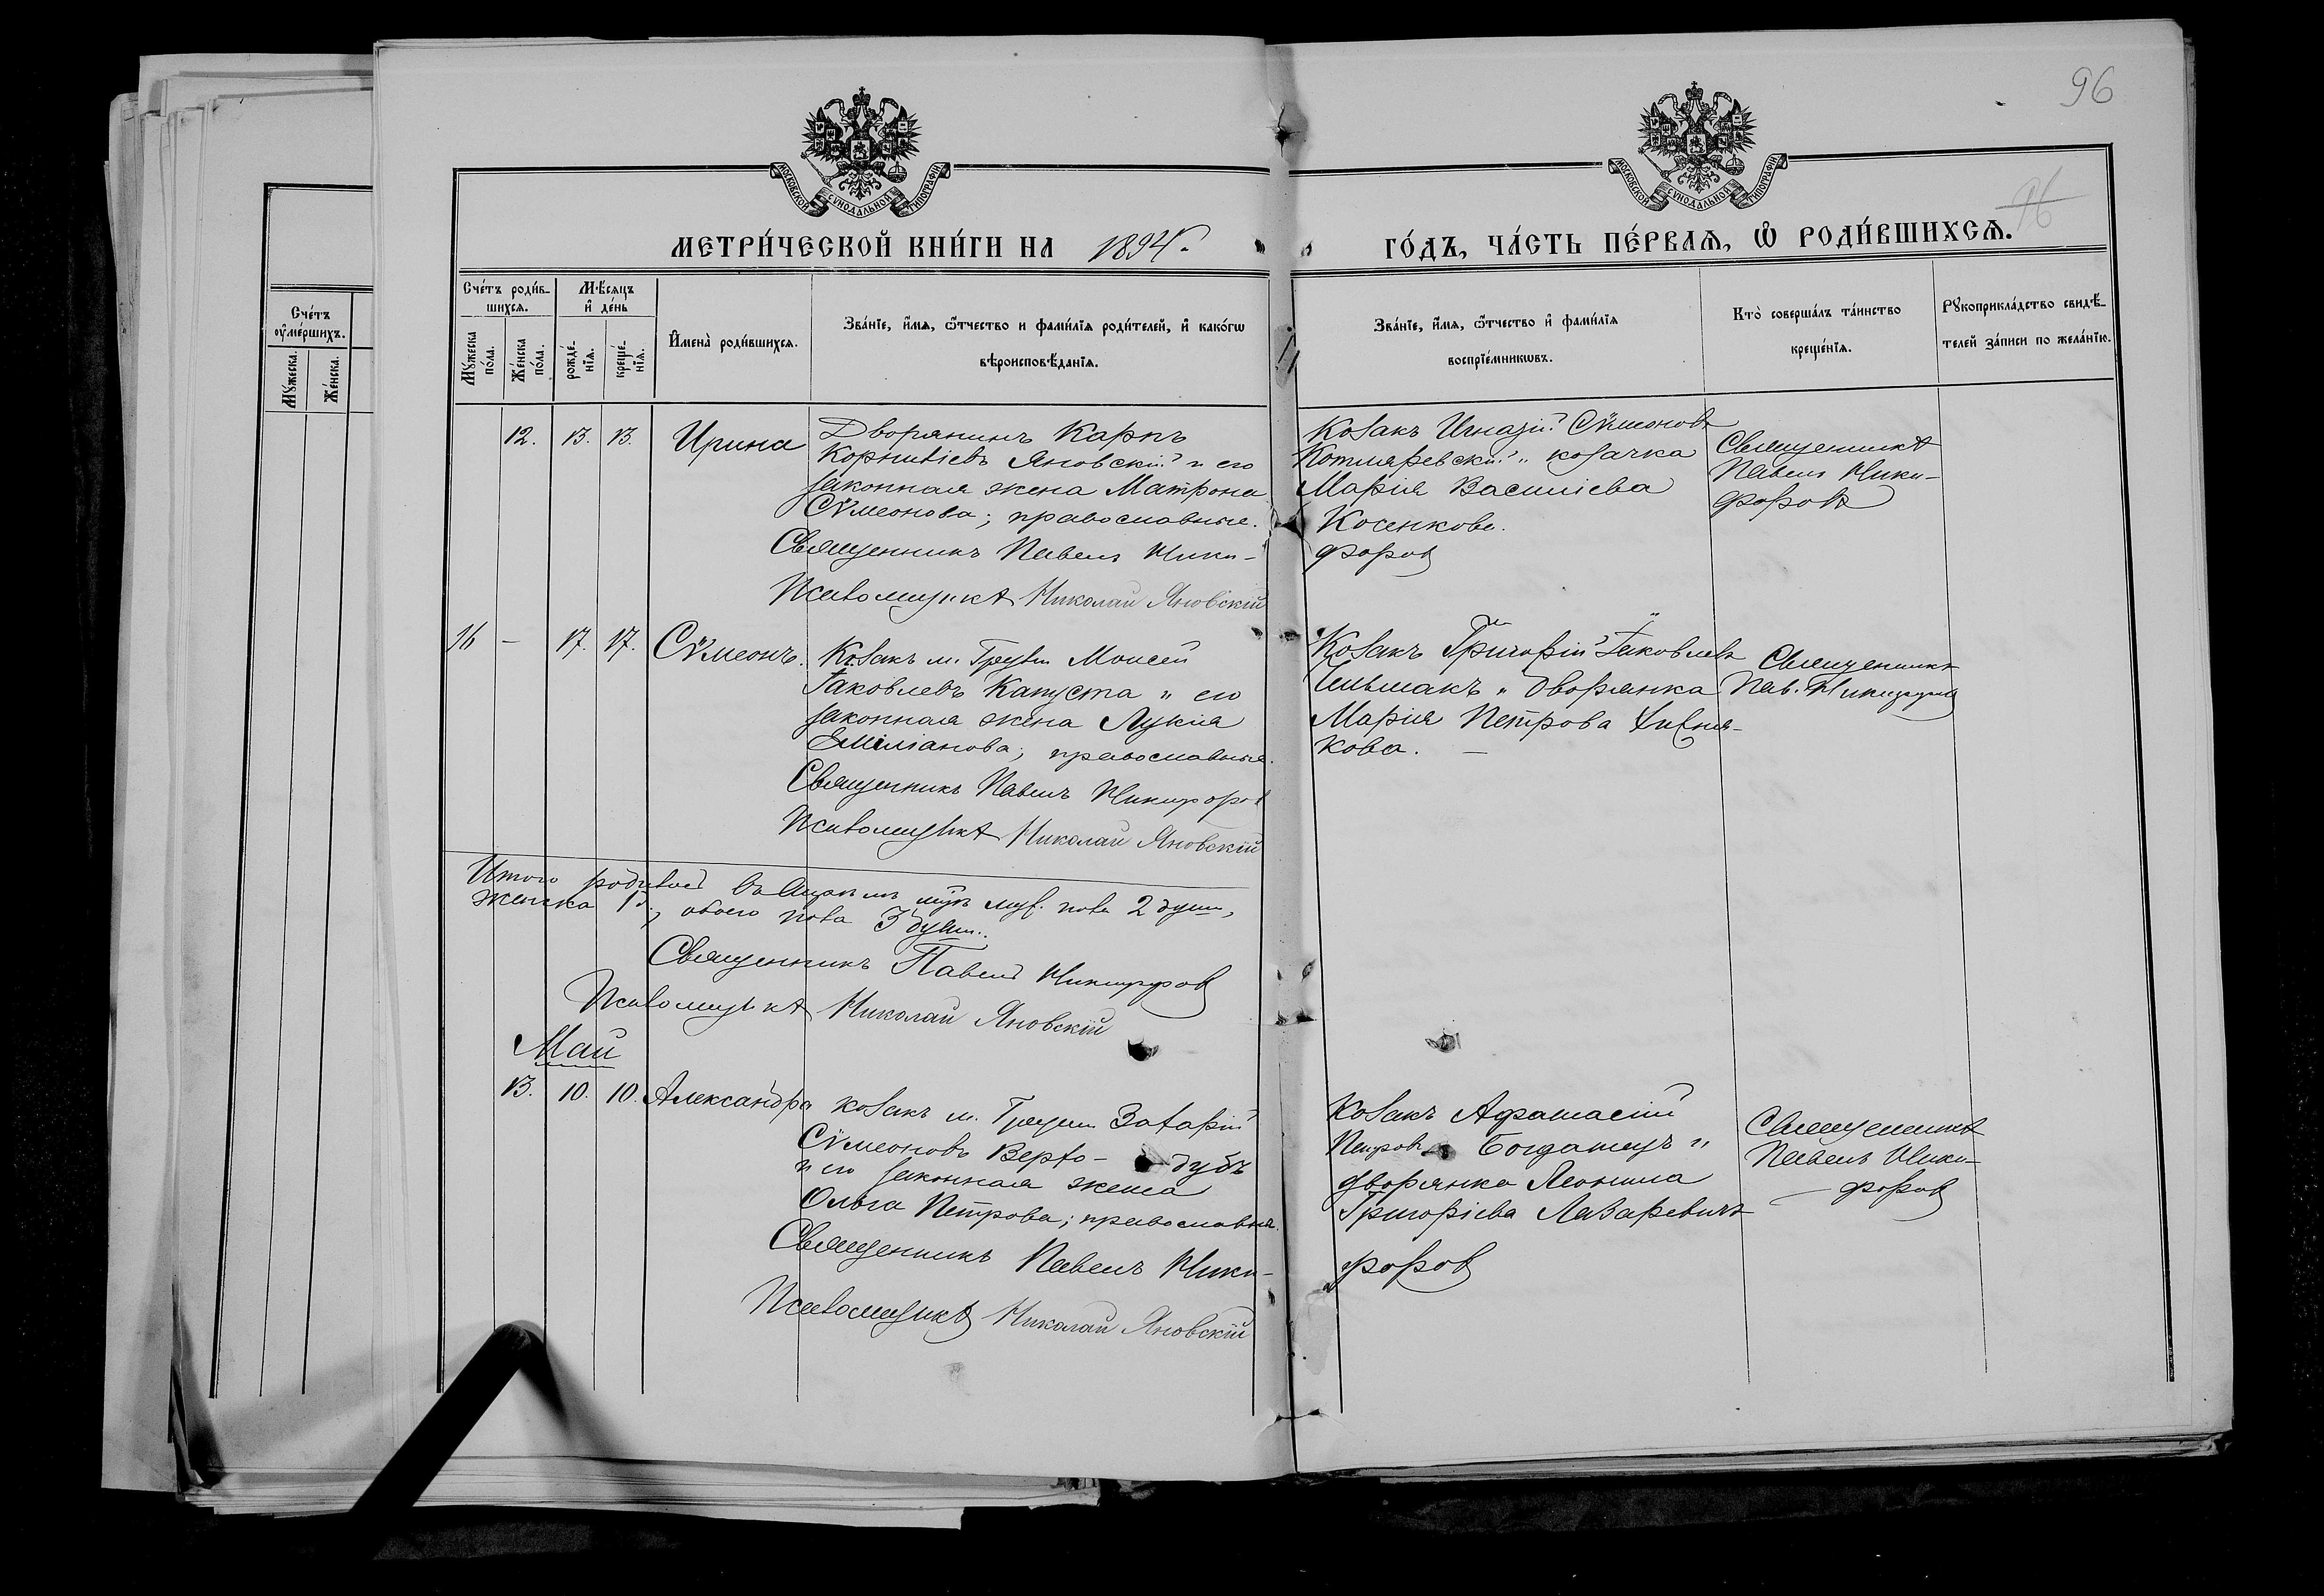 96
96
МОСКОВСКОЙ СУНОДАЛЬНОЙ ТИПОГРАФІИ
МОСКОВСКОЙ СУНОДАЛЬНОЙ ТИПОГРАФІИ
МЕТРИ́ЧЕСКОЙ КНИ́ГИ НА 1894
ГО́ДЪ, ЧА́СТЬ ПЕ́РВАѦ, Ѽ РОДИ́ВШИХСѦ.
Счéтъ ᲂу҆мéршихъ.
Мꙋ́жеска.
Жéнска.
Счéтъ роди́вшихсѧ.
Мꙋ́жеска по́ла.
Жéнска по́ла.
Мѣ́сѧцъ и҆ дéнь
рождéнїѧ.
крещéнїѧ.
И҆менà роди́вшихсѧ.
Звáнїе, и҆́мѧ, ѻ҆́тчество и фами́лїѧ роди́телей, и҆ какóгѡ
вѣроисповѣ́данїѧ.
Звáнїе, и҆́мѧ, ѻ҆́тчество и҆ фами́лїѧ
воспрїéмникѡвъ.
Ктò совершáлъ тáинство
крещéнїѧ.
Рꙋкоприклáдство свидѣ́-
телей зáписи по желáнїю.
12. 13. 13. Ирина
Дворянинъ Карпъ
Корниліевъ Яновскій и его
законная жена Матрона
Сѵмеонова; православные.
Священникъ Павелъ Ники-
форов
Псаломщикъ Николай Яновскій
Козакъ Игнатій Сѵмеоновъ
Котляревскій и козачка
Марія Василіева
Косенкова.
Священникъ
Павелъ Ники-
форовъ
16 — 17. 17. Сѵмеонъ.
Козакъ м. Моисей
Іаковлевъ Капуста и его
законная жена Лукія
Емиліанова; православные.
Священникъ Павелъ Никифоров
Псаломщикъ Николай Яновскій
Козакъ Григорій Іаковлевъ
и дворянка
Марія Петрова
кова. —
Священникъ
Пав. Никифоров
Итого родилось въ Апрѣлѣ муж. пола 2 души,
женска 1, обоего пола 3 души.
Священникъ Павелъ Никифоров
Псаломщикъ Николай Яновскій
Май
13. 10. 10. Александра
Козакъ м. Захарій
Сѵмеоновъ Верто- дубъ
и его законная жена
Ольга Петрова; православные.
Священникъ Павелъ Ники-
форов
Псаломщикъ Николай Яновскій
Козакъ Афанасій
Петровъ и
дворянка Леонила
Григоріева Лазаревичъ
Священникъ
Павелъ Ники-
форов